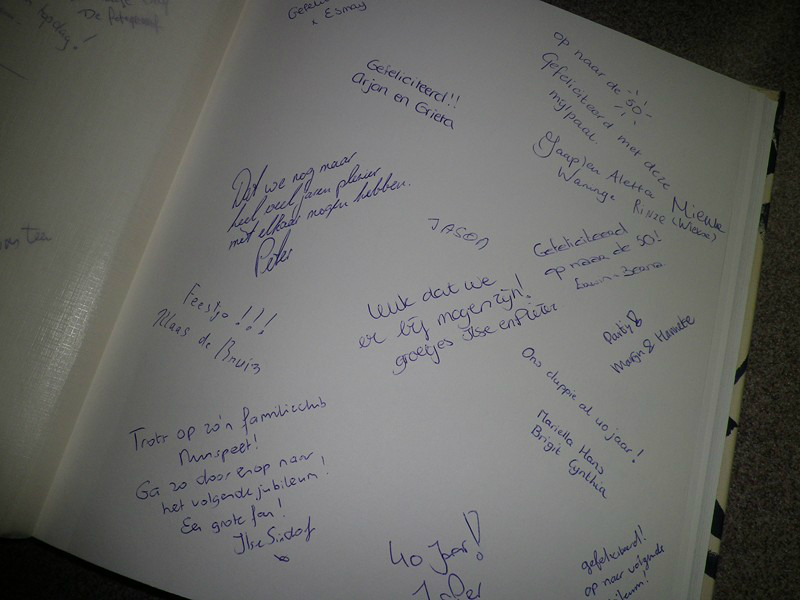 De fotograaf
Gefeli
& Esmay
Gefeliciteerd!!
Arjan en Grieta
op naar de 50
Gefeliciteerd met deze
mijlpaal.
Jaapjen Aletta Nienke
Waninge Rinze (Wiekse)
Dat we nog maar
heel veel jaren plezier
met elkaar mogen hebben.
Peter
JASON
Gefeliciteerd
op naar de 50!
Feestje !!!
Klaas de Bruin
leuk dat we
er bij mogen zijn!
groetjes Ilse en Pieter
Party
Marijn & Hanneke
Ons cluppie al 40 jaar!
Mariella Hans
Brigit Cynthia
Trots op zo'n familieclub
Nunspeet!
Ga zo door en op naar
het volgende jubileum!
Een grote fan!
Ilse
40 jaar!
gefeliciteerd!
op naar volgende